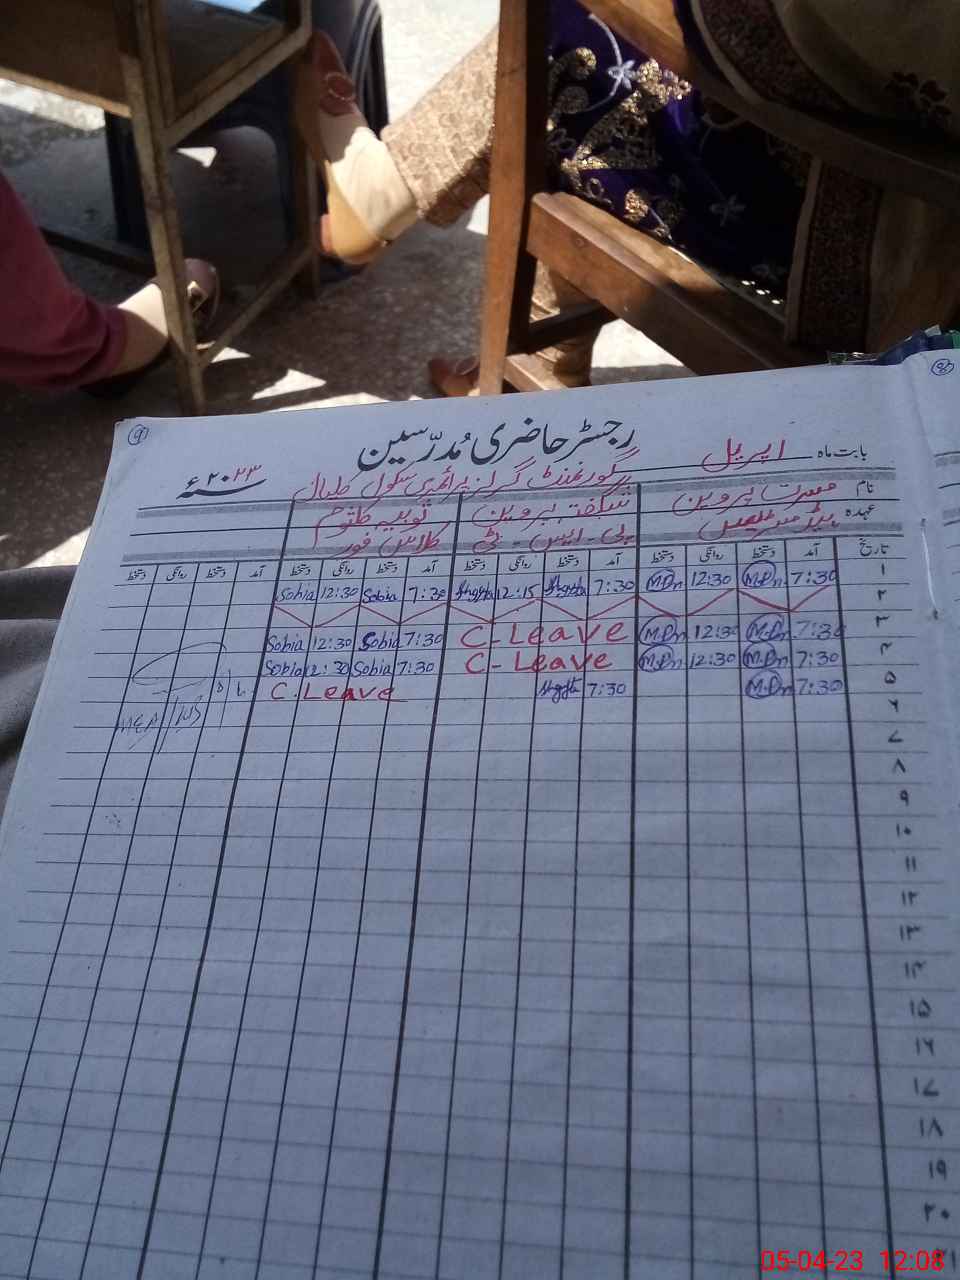 9
رجسٹر حاضری مُدرّسین
بابت ماہ اپریل ۲۰۲۳ء
گورنمنٹ گرلز پرائمری سکول
نام مسرت پروین شگفتہ پروین ثوبیہ کلثوم
عہدہ ہیڈ مسٹریس پی-ایس-ٹی کلاس فور
تاریخ آمد دستخط روانگی دستخط آمد دستخط روانگی دستخط آمد دستخط روانگی دستخط آمد دستخط روانگی دستخط
۱ 7:30 M.Pn 12:30 M.Pn 7:30 12:15 7:30 Sobia 12:30 Sobia
۲
۳ 7:30 M.Pn 12:30 M.Pn C-Leave 7:30 Sobia 12:30 Sobia
۴ 7:30 M.Pn 12:30 M.Pn C-Leave 7:30 Sobia 12:30 Sobia
۵ 7:30 M.Pn 7:30 C.Leave
۶
۷
۸
۹
۱۰
۱۱
۱۲
۱۳
۱۴
۱۵
۱۶
۱۷
۱۸
۱۹
۲۰
۲۱
05-04-23 12:08